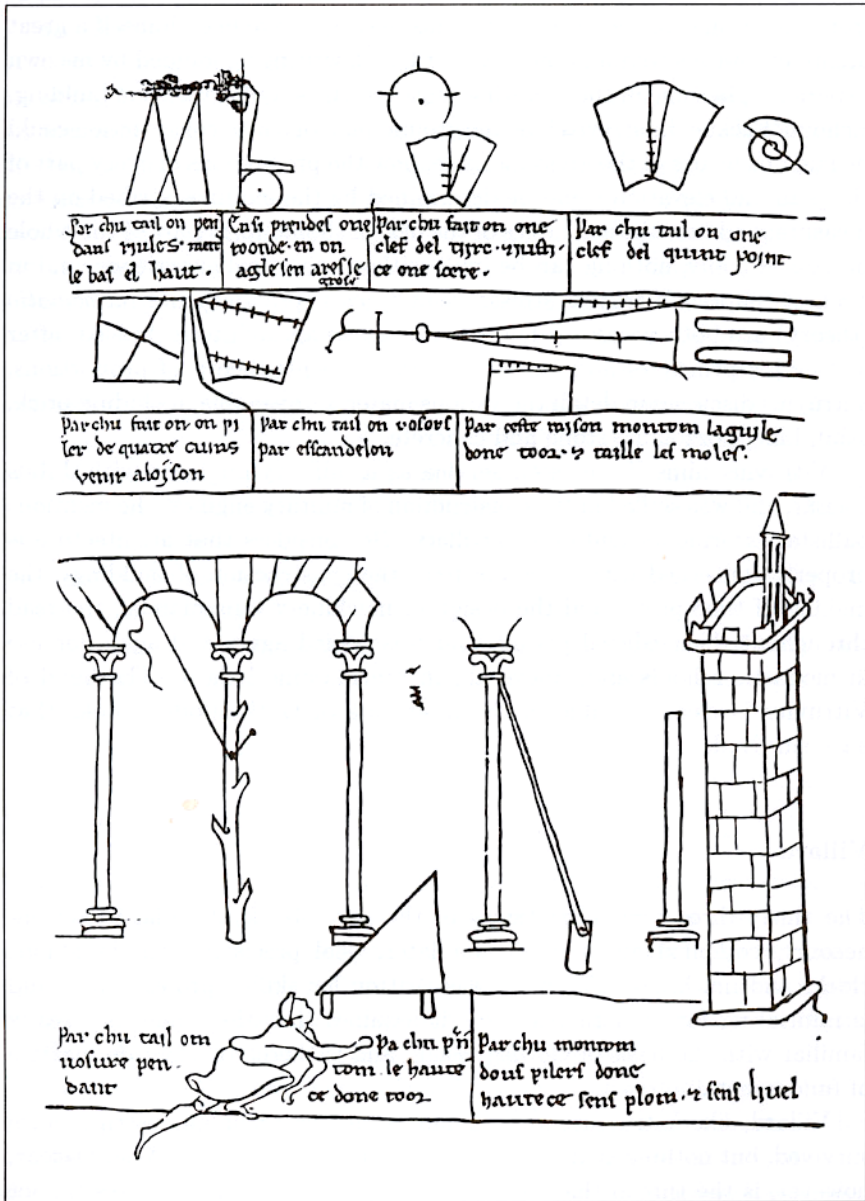 Par chu tail on pen
dans riules. metre
le bas el haut.
Ensi prendes one
roonde. en on
agle sen ares le
grose
Par chu fait on one
clef del tirc. ⁊ justi.
ce one scere.
Par chu tail on one
clef del quint point
Par chu fait on on pi
ler de quatre cuins
venir aloison
Par chu tail on vosors
par esscandelon
Par ceste raison montom laguile
done toor. ⁊ taille les moles.
Par chu tail om
vosure pen.
dant
Pa chu prn
tom. le haute
ce done toor
Par chu montom
dous pilers done
hautece sens plom. ⁊ sens livel